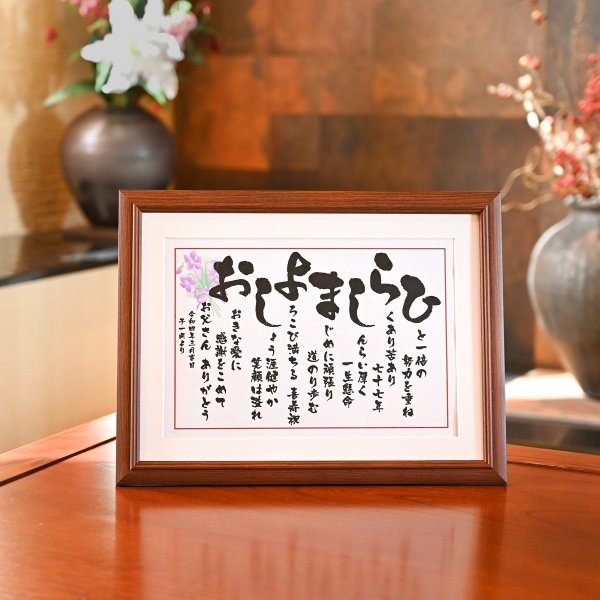 ひらしまよしお
と一倍の
努力を重ね
くあり苦あり
七十七年
んらい厚く
一生懸命
じめに頑張り
道のり歩む
ろこび満ちる 喜寿祝
ょう涯健やか
笑顔は溢れ
おきな愛に
感謝をこめて
お父さん ありがとう
令和四年三月吉日
子一同より